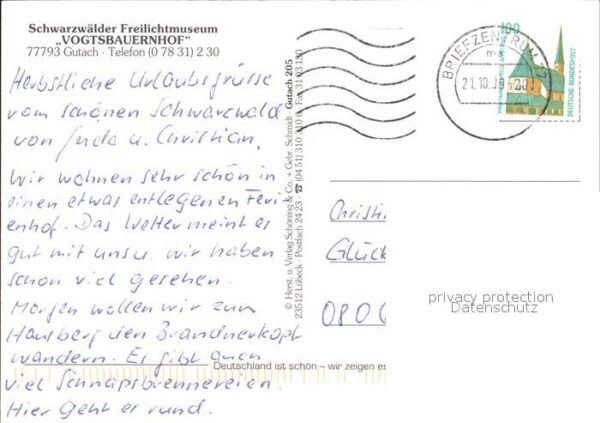 Schwarzwälder Freilichtmuseum
„VOGTSBAUERNHOF"
77793 Gutach · Telefon (0 78 31) 2 30
Herbstliche Urlaubsgrüsse
vom schönen Schwarzwald
von u. Christian.
Wir wohnen sehr schön in
einen etwas entlegenen Feri-
enhof. Das Wetter meint es
gut mit uns u. wir haben
schon viel gesehen.
Morgen wollen wir zum
Hausberg den Brandnerkopf
wandern. Es gibt auch
viel Schnapsbrennereien.
Hier geht es rund.
Deutschland ist schön – wir zeigen es
© Herst. u. Verlag Schöning & Co. + Gebr. Schmidt · Gutach 205
23512 Lübeck · Postfach 24 23 · ☎ (04 51) 310 310
BRIEFZENTRUM
21.10.
100
DEUTSCHE BUNDESPOST
Christi
Glück
080
privacy protection
Datenschutz